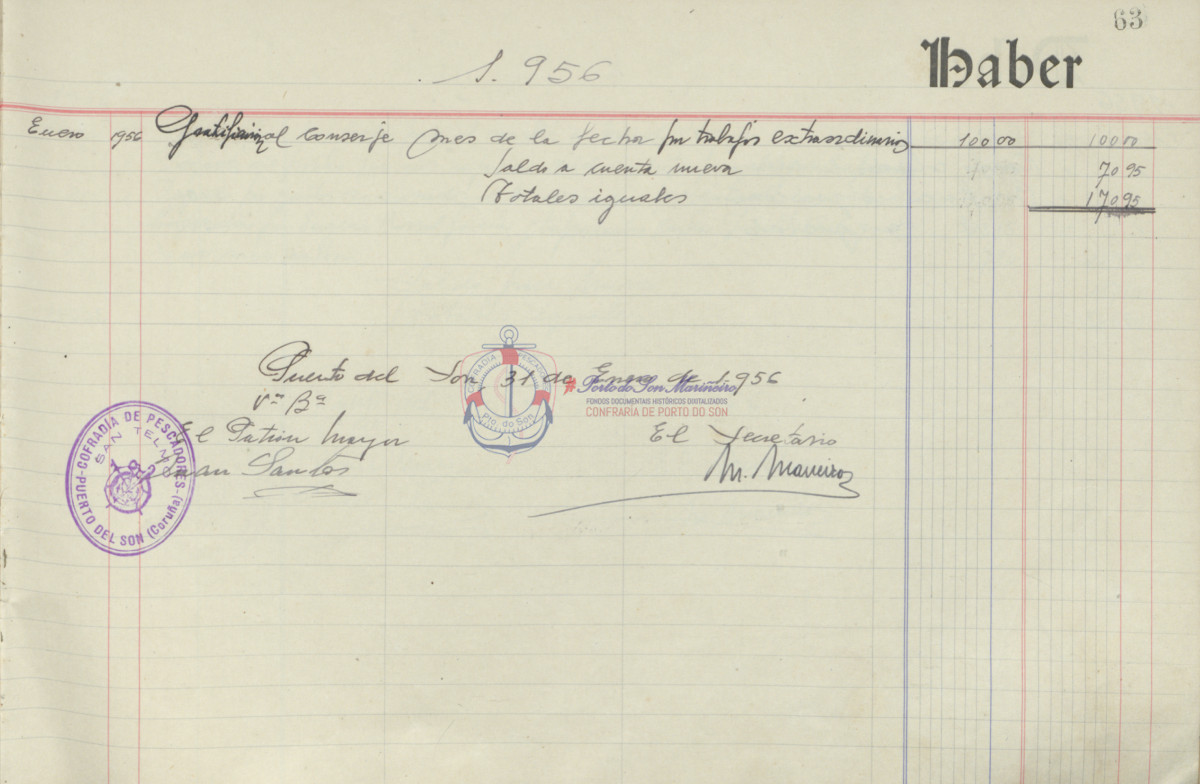 63
1.956
Haber
Enero 1956 Gratificación al Conserje mes de la fecha por trabajos extraordinarios 100 00 100 00
Saldo a cuenta nueva 70 95
Totales iguales 170 95
Puerto del Son 31 de Enero de 1,956
Vº Bº
El Patron mayor
Juan Santos
El Secretario
M. Maneiro
COFRADÍA DE PESCADORES
SAN TELMO
PUERTO DEL SON (Coruña)
COFRADIA PESCADORES
Pto. do Son
# Porto do Son Mariñeiro
FONDOS DOCUMENTAIS HISTÓRICOS DIXITALIZADOS
CONFRARÍA DE PORTO DO SON